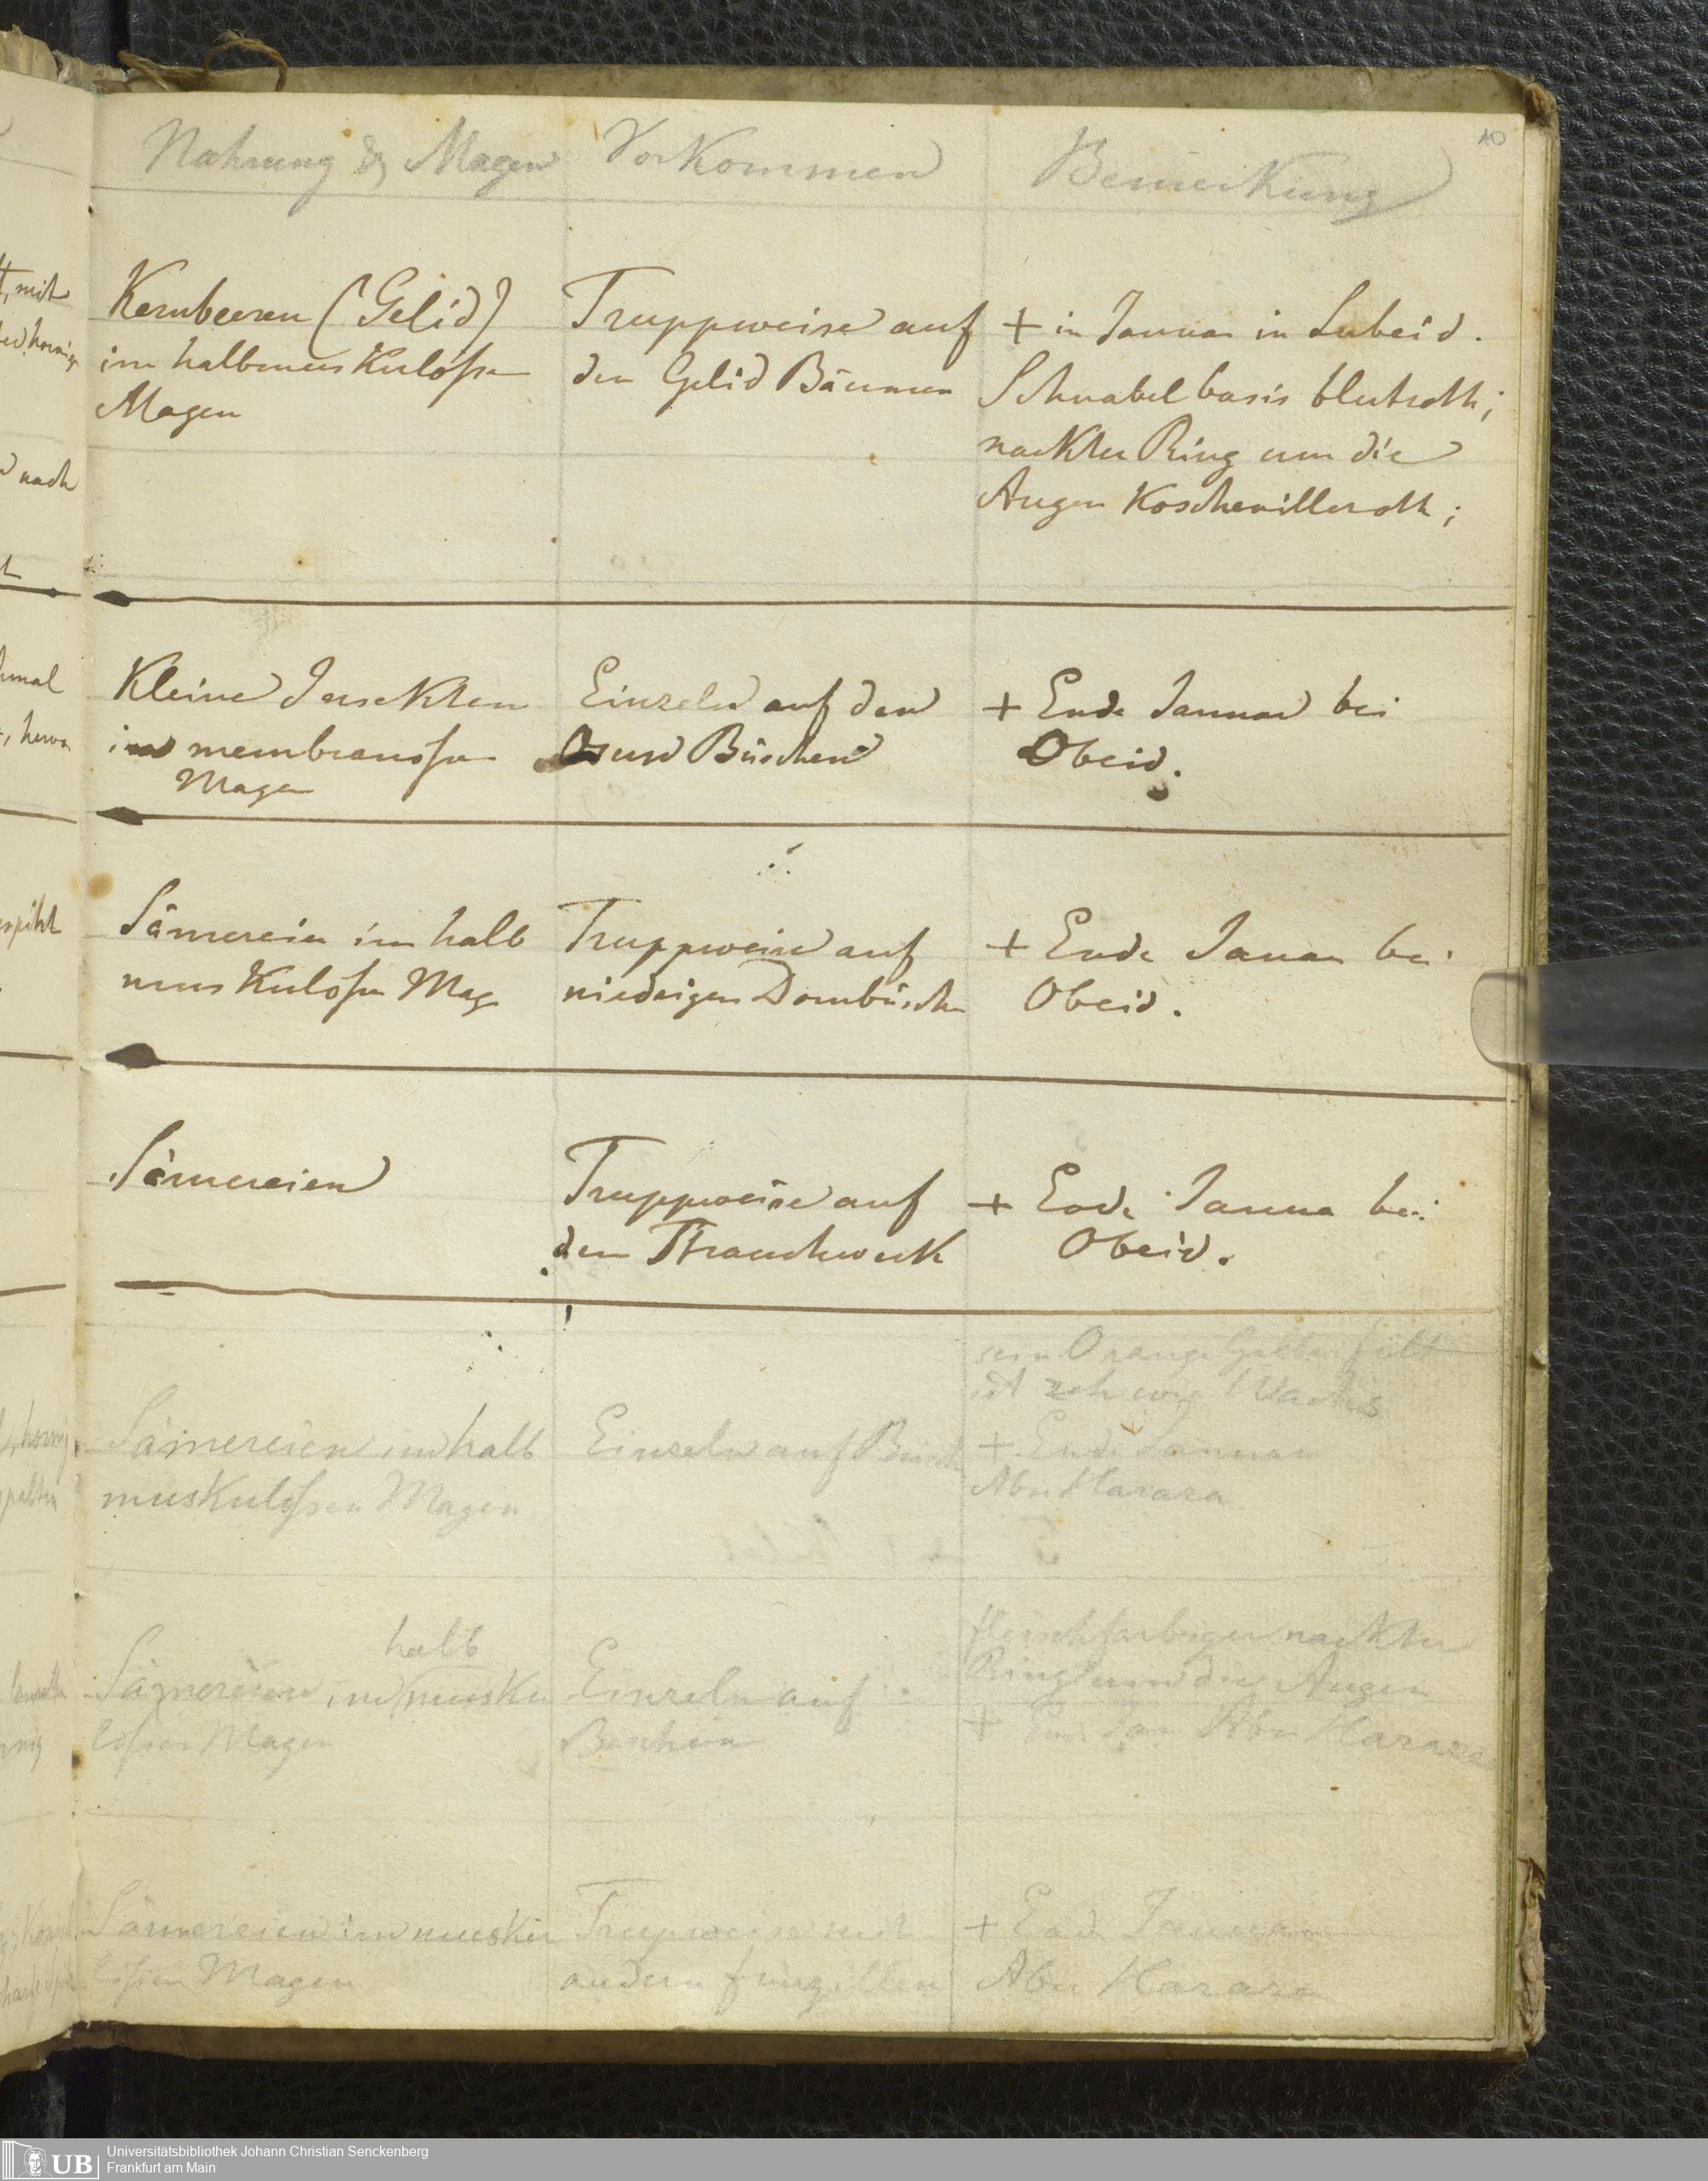 10
Nahrung & Magen
Vorkommen
Bemerkung
Kernbeeren (Gelid)
im halbmuskulosen
Magen
Truppweise auf
den Gelid Bäumen
+ in Januar in Lubeid.
Schnabel basis blutroth;
nackter Ring um die
Augen Koschenilleroth;
Kleine Insekten
im membranosen
Magen
Einzeln auf den
Büschen
+ Ende Januar bei
Obeid.
Sämereien im halb
muskulosen Mag
Truppweise auf
niedrigen Dornbüschen
+ Ende Januar bei
Obeid.
Sämereien
Truppweise auf
dem Strauchwerk
+ Ende Januar bei
Obeid.
Sämereien im halb
muskulosen Magen
Einzeln auf Busch
sein Orange Gelber
ist zeh wie Wachs
+ Ende Januar
Abu Haraza
halb
Sämereien im musku
losen Magen
Einzeln auf
fleischfarbiger nackter
Ring um die Augen
+ Ende Jan Abu Haraza
Sämereien im musku
losen Magen
Truppweise mit
andern fringillen
+ Ende Januar
Abu Haraza
mit
nach
UB
Universitätsbibliothek Johann Christian Senckenberg
Frankfurt am Main